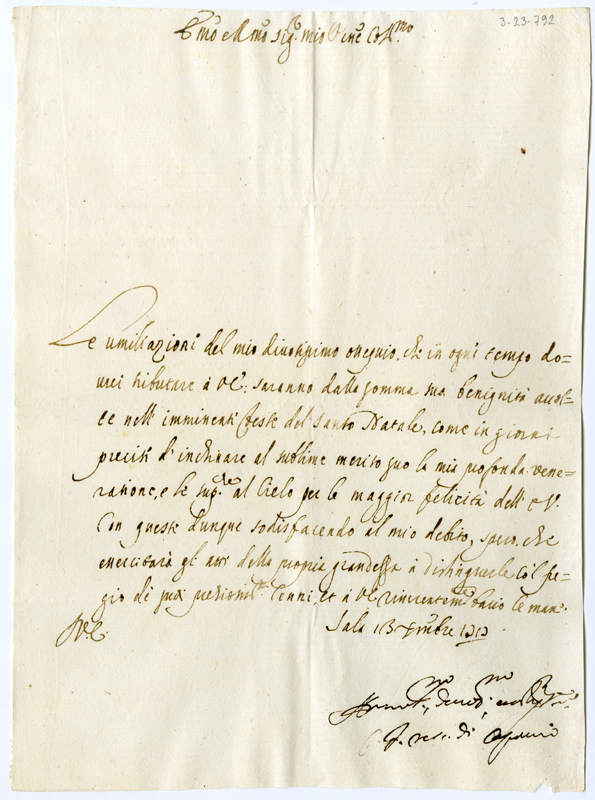 3-23-792
Em̃o e Rmo Sig.r mio Oss.mo Col.mo
Le umiliazioni del mio diuotissimo ossequio, che in ogni tempo do=
urei tributare à VE: saranno dalla somma sua benignità accol=
te nell' imminenti feste del Santo Natale, come in giorni
precisi d' inchinare al sublime merito suo la mia profonda vene=
ratione, e le sup.che al Cielo per le maggior felicità dell' E.V.
Con queste dunque sodisfacendo al mio debito, spero, che
esercitarà gl' atti della propria grandezza à distinguerle col fre=
gio de suoi pretiosis.mi Cenni, et à VE riuerentem.te bacio le man.
Sala 13 Xmbre
V.E.
Vesc. di